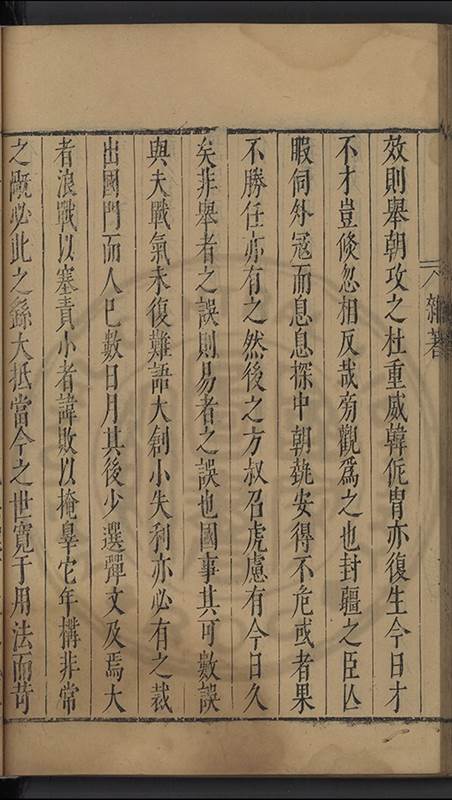 雜著
效則舉朝攻之杜重威韓侂胄亦復生今日才
不才豈倏忽相反哉旁觀為之也封疆之臣亾
暇伺外寇而息息探中朝巍安得不危或者果
不勝任亦有之然後之方叔召虎慮有今日久
矣非舉者之誤則易者之誤也國事其可數誤
與夫戰氣未復難語大創小失利亦必有之裁
出國門而人巳數日月其後少選彈文及焉大
者浪戰以塞責小者諱敗以掩辠它年搆非常
之漑必此之繇大抵當今之世寬于用法而苛